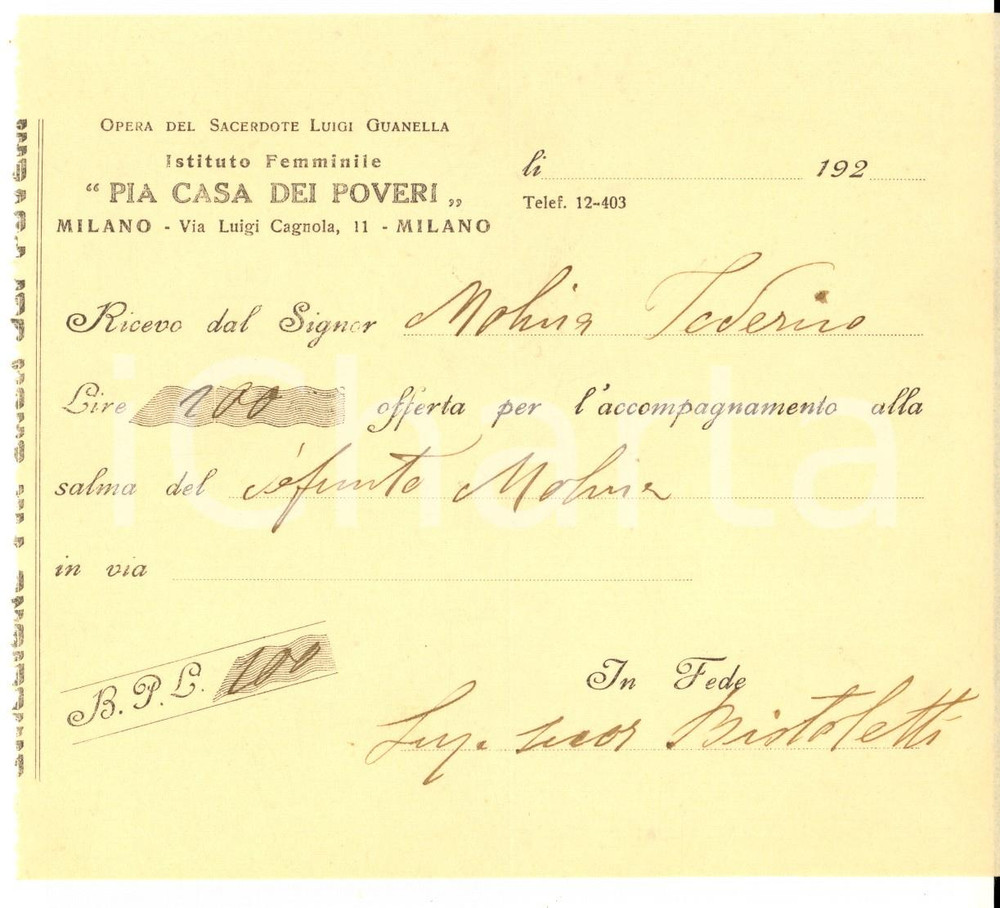 OPERA DEL SACERDOTE LUIGI GUANELLA
Istituto Femminile
“ PIA CASA DEI POVERI „
MILANO - Via Luigi Cagnola, 11 - MILANO
li 192
Telef. 12-403
Ricevo dal Signor Molina Federico
Lire 100 offerta per l'accompagnamento alla
salma del defunto Molina
in via
B. P. L. 100
In Fede
Bistoletti
iCharta